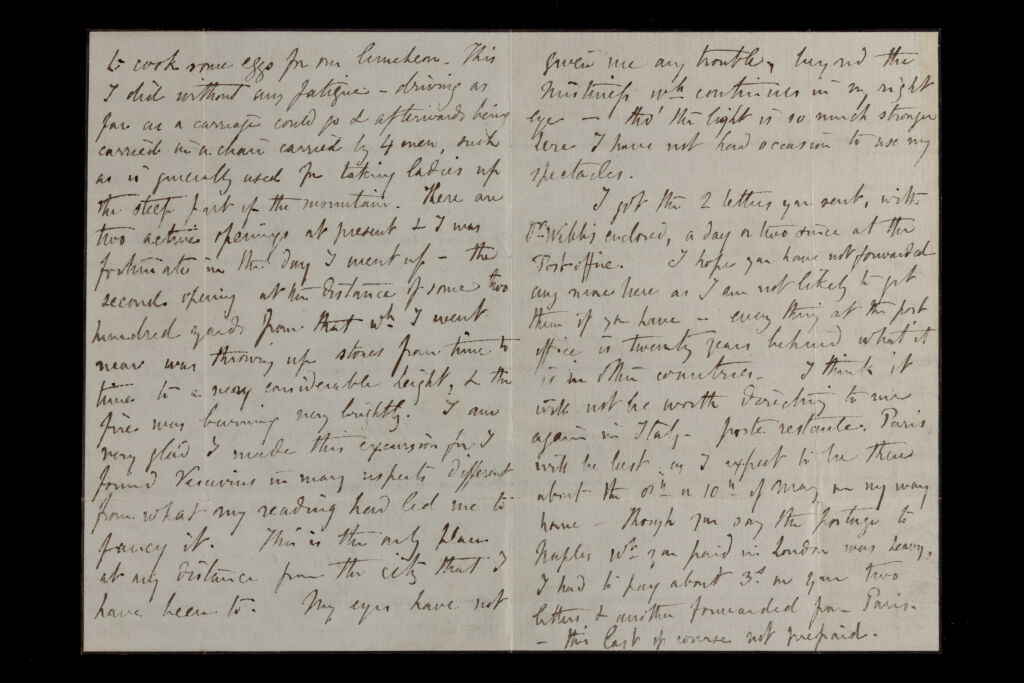 to cook some eggs for our luncheon. This
I did without any fatigue - driving as
far as a carriage could go & afterwards being
carried in a chair carried by 4 men, such
as is generally used for taking ladies up
the steep part of the mountain. There are
two active openings at present & I was
fortunate in the day I went up - the
second opening at the distance of some two
hundred yards from that wh I went
near was throwing up stones from time to
time to a very considerable height, & the
fire was burning very brightly. I am
very glad I made this excursion for I
found Vesuvius in many respects different
from what my reading had led me to
fancy it. This is the only place
at any distance from the city that I
have been to. My eyes have not
given me any trouble, beyond the
mistiness wh continues in my right
eye - tho' the light is so much stronger
here I have not had occasion to use my
spectacles.
I got the 2 letters you sent, with
Dr Webb's enclosed, a day or two since at the
Post office. I hope you have not forwarded
any more here as I am not likely to get
them if you have - every thing at the post
office is twenty years behind what it
is in other countries. I think it
will not be worth directing to me
again in Italy - poste restante. Paris
will be best, as I expect to be there
about the 8th or 10th of May on my way
home - Though you say the postage to
Naples wh you paid in London was heavy,
I had to pay about 3s on your two
letters & another forwarded from Paris.
- this last of course not prepaid.